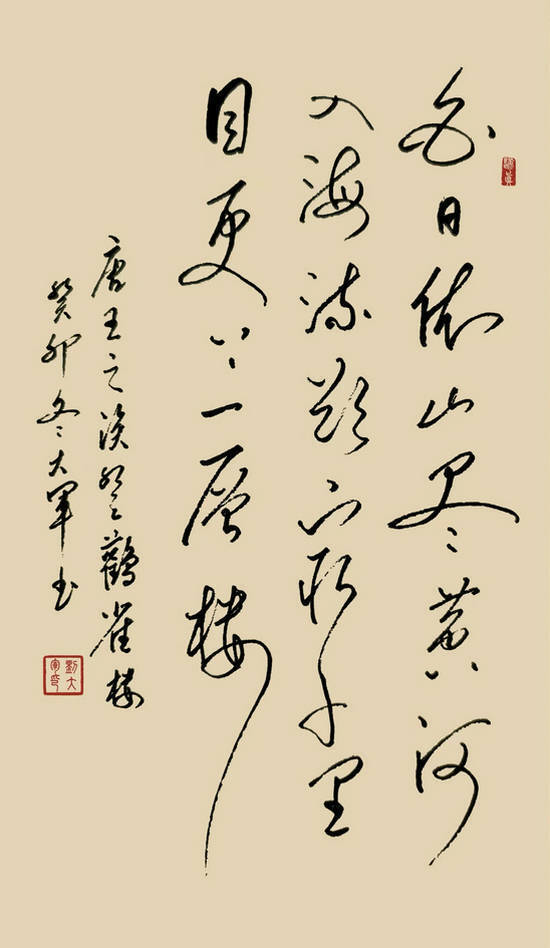 白日依山尽黄河
入海流欲窮千里
目更上一層楼
唐王之涣登鸛雀楼
癸卯冬大軍书
劉大軍印